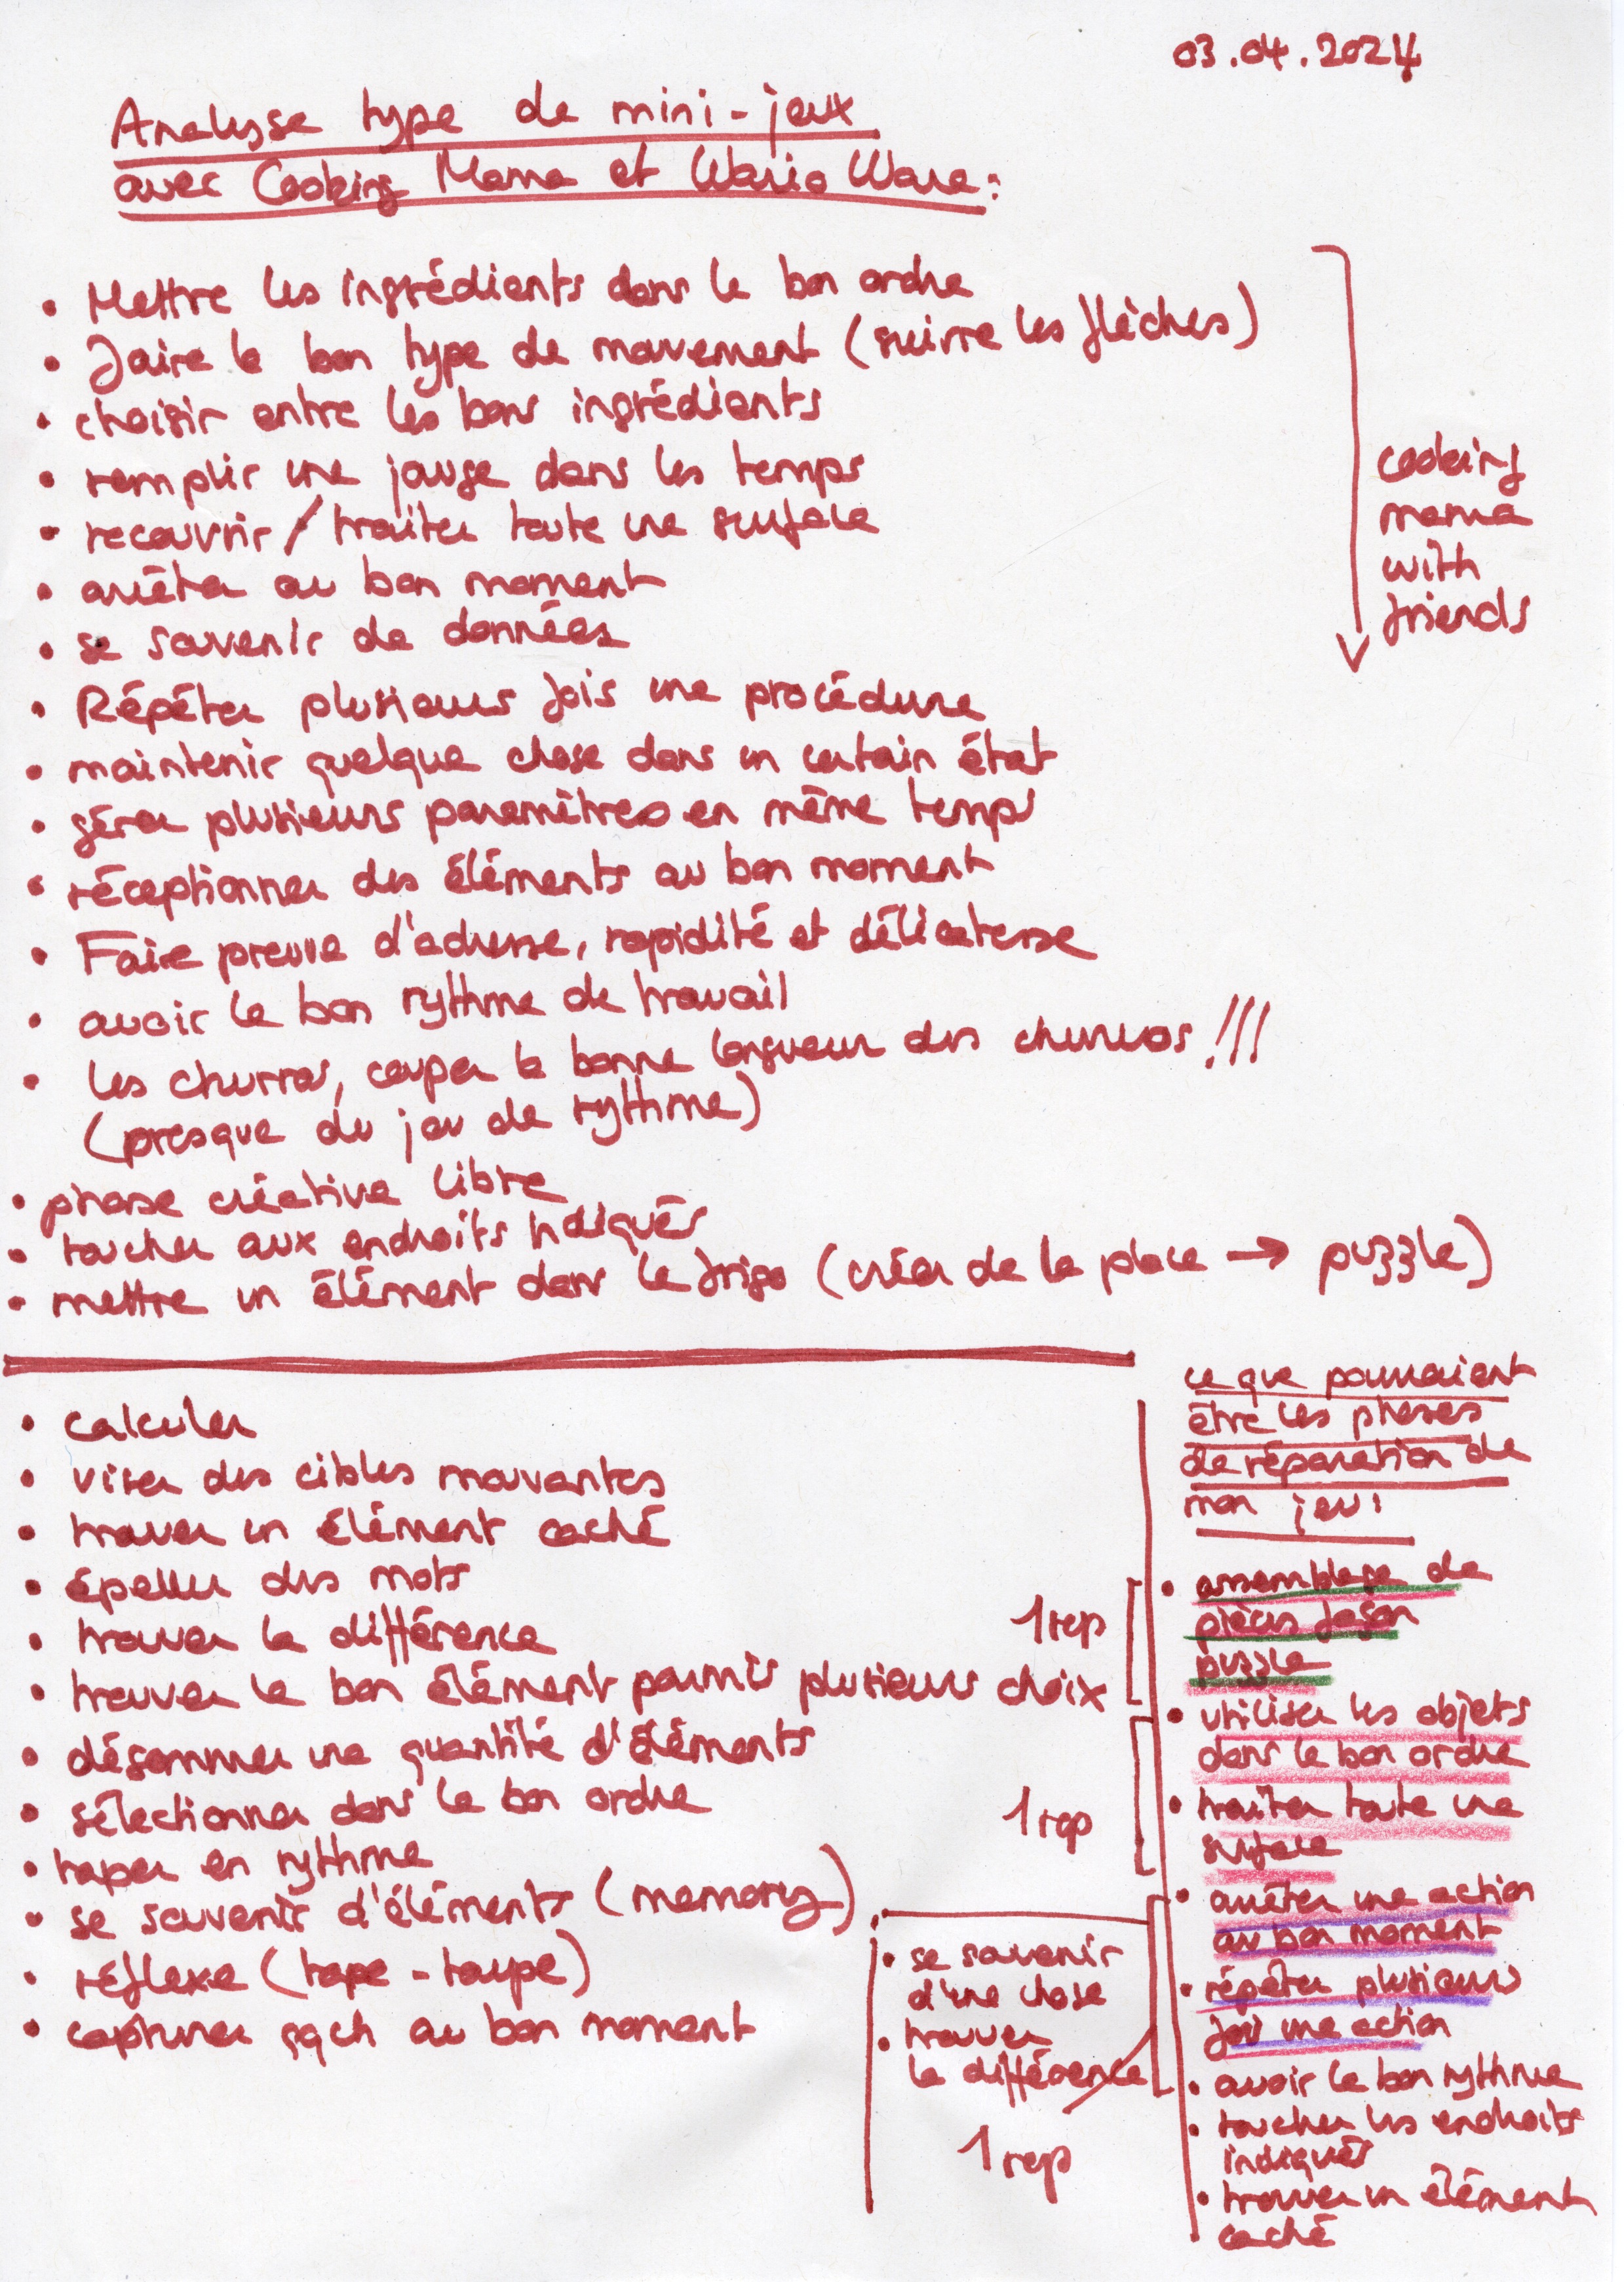 03.04.2024
Analyse type de mini-jeux
avec Cooking Mama et Wario Ware:
• Mettre les ingrédients dans le bon ordre
• Faire le bon type de mouvement (suivre les flèches)
• choisir entre les bons ingrédients
• remplir une jauge dans les temps
• recouvrir / traiter toute une surface
• arrêter au bon moment
• se souvenir de données
• Répéter plusieurs fois une procédure
• maintenir quelque chose dans un certain état
• gérer plusieurs paramètres en même temps
• réceptionner des éléments au bon moment
• Faire preuve d'adresse, rapidité et délicatesse
• avoir le bon rythme de travail
• les churros, couper la bonne longueur des churros !!!
(presque du jeu de rythme)
• phase créative libre
• toucher aux endroits indiqués
• mettre un élément dans le frigo (créer de la place → puzzle)
cooking
mama
with
friends
• calculer
• viser des cibles mouvantes
• trouver un élément caché
• épeller des mots
• trouver la différence
• trouver le bon élément parmis plusieurs choix
• dégommer une quantité d'éléments
• sélectionner dans le bon ordre
• taper en rythme
• se souvenir d'éléments (memory)
• réflexe (tape - taupe)
• capturer qqch au bon moment
ce que pourraient
être les phases
de réparation de
mon jeu:
1 rep
• assemblage de
pièces façon
puzzle
1 rep
• utiliser les objets
dans le bon ordre
• traiter toute une
surface
• arrêter une action
au bon moment
• répéter plusieurs
fois une action
• avoir le bon rythme
• toucher les endroits
indiqués
• trouver un élément
caché
• se souvenir
d'une chose
• trouver
la différence
1 rep